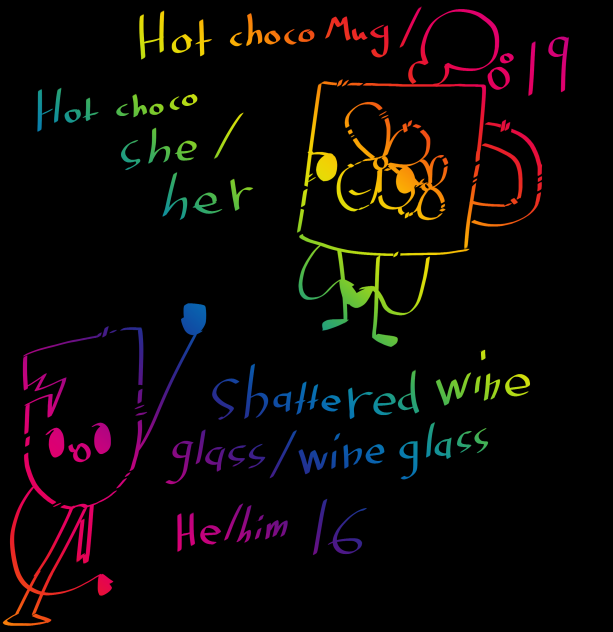 Hot choco Mug/
19
Hot choco
she/
her
Shattered wine
glass/wine glass
He/him 16